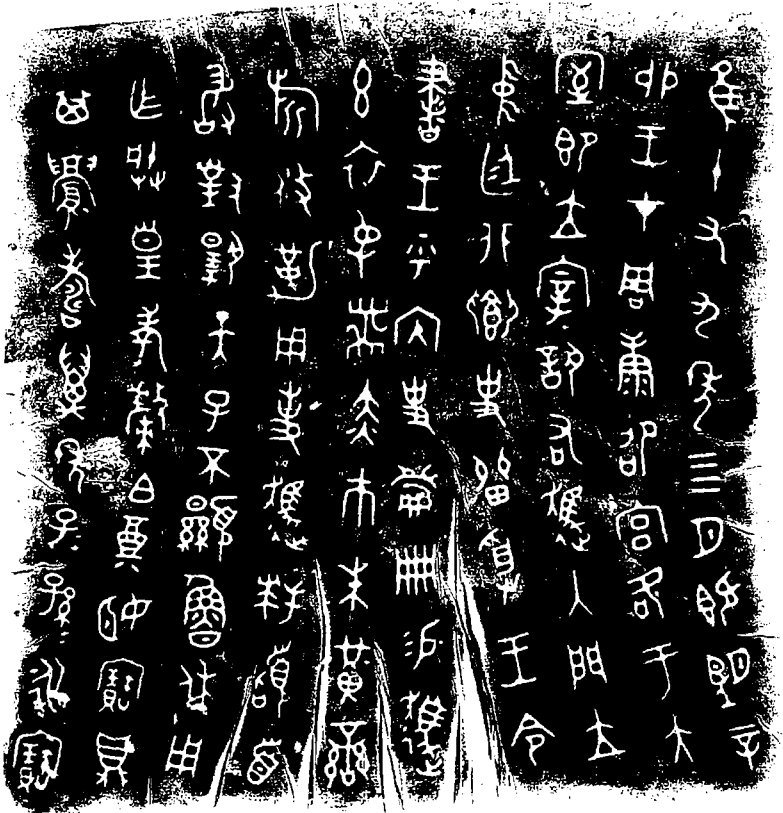 隹十又九年四月既望辛
卯王才周康卲宮各于大
室即立宰訊右趞入門立
中廷北鄉史留受王令
書王乎內史冊易趞
玄衣屯黹赤巿朱黃䜌
旂攸勒用事趞拜䭫首
敢對揚天子不顯魯休用
乍朕皇考斄白奠姬寶鼎
其眉壽萬年子子孫孫永寶